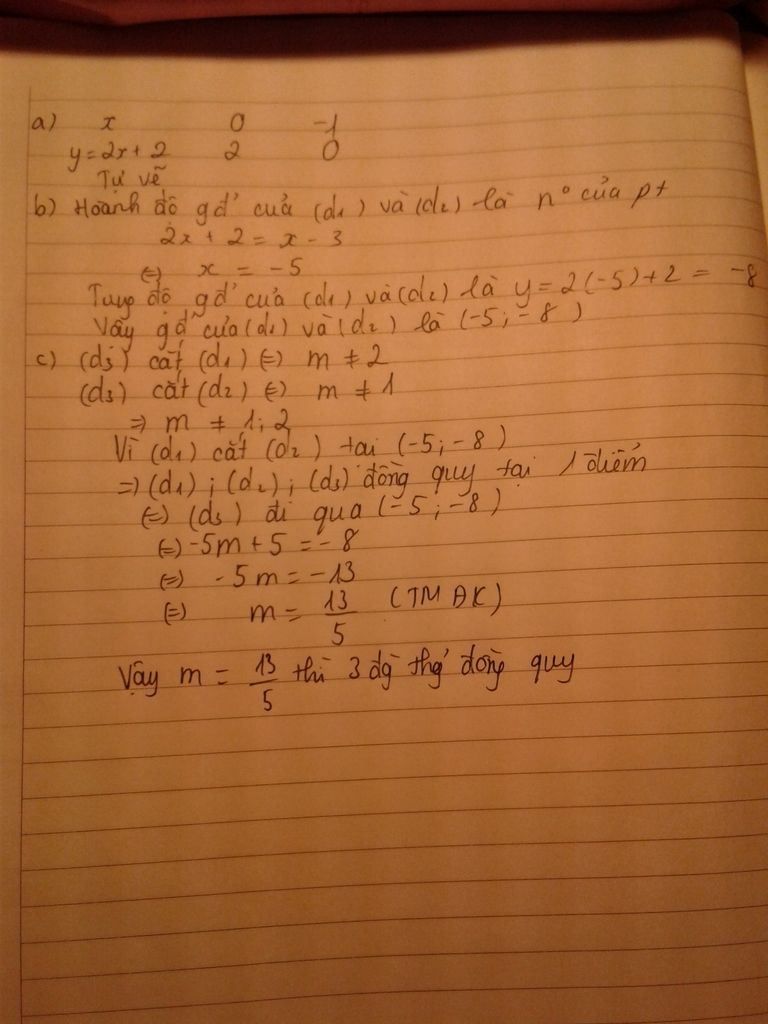 a) x 0 -1
y=2x+2 2 0
Tự vẽ
b) Hoành độ gđ' của (d1) và (d2) là n° của pt
2x + 2 = x - 3
(=) x = -5
Tung độ gđ' của (d1) và (d2) là y = 2(-5)+2 = -8
Vậy gđ' của (d1) và (d2) là (-5; -8)
c) (d3) cắt (d1) (=) m ≠ 2
(d3) cắt (d2) (=) m ≠ 1
=> m ≠ 1; 2
Vì (d1) cắt (d2) tại (-5; -8)
=> (d1); (d2); (d3) đồng quy tại 1 điểm
(=) (d3) đi qua (-5; -8)
(=) -5m + 5 = -8
(=) -5m = -13
(=) m = 13/5 (TMĐK)
Vậy m = 13/5 thì 3 đg` thg' đồng quy